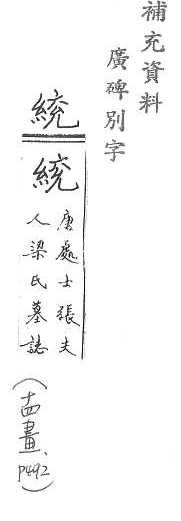 補充資料
廣碑別字
統
統
唐處士張夫
人梁氏墓誌
（十四畫、P492）